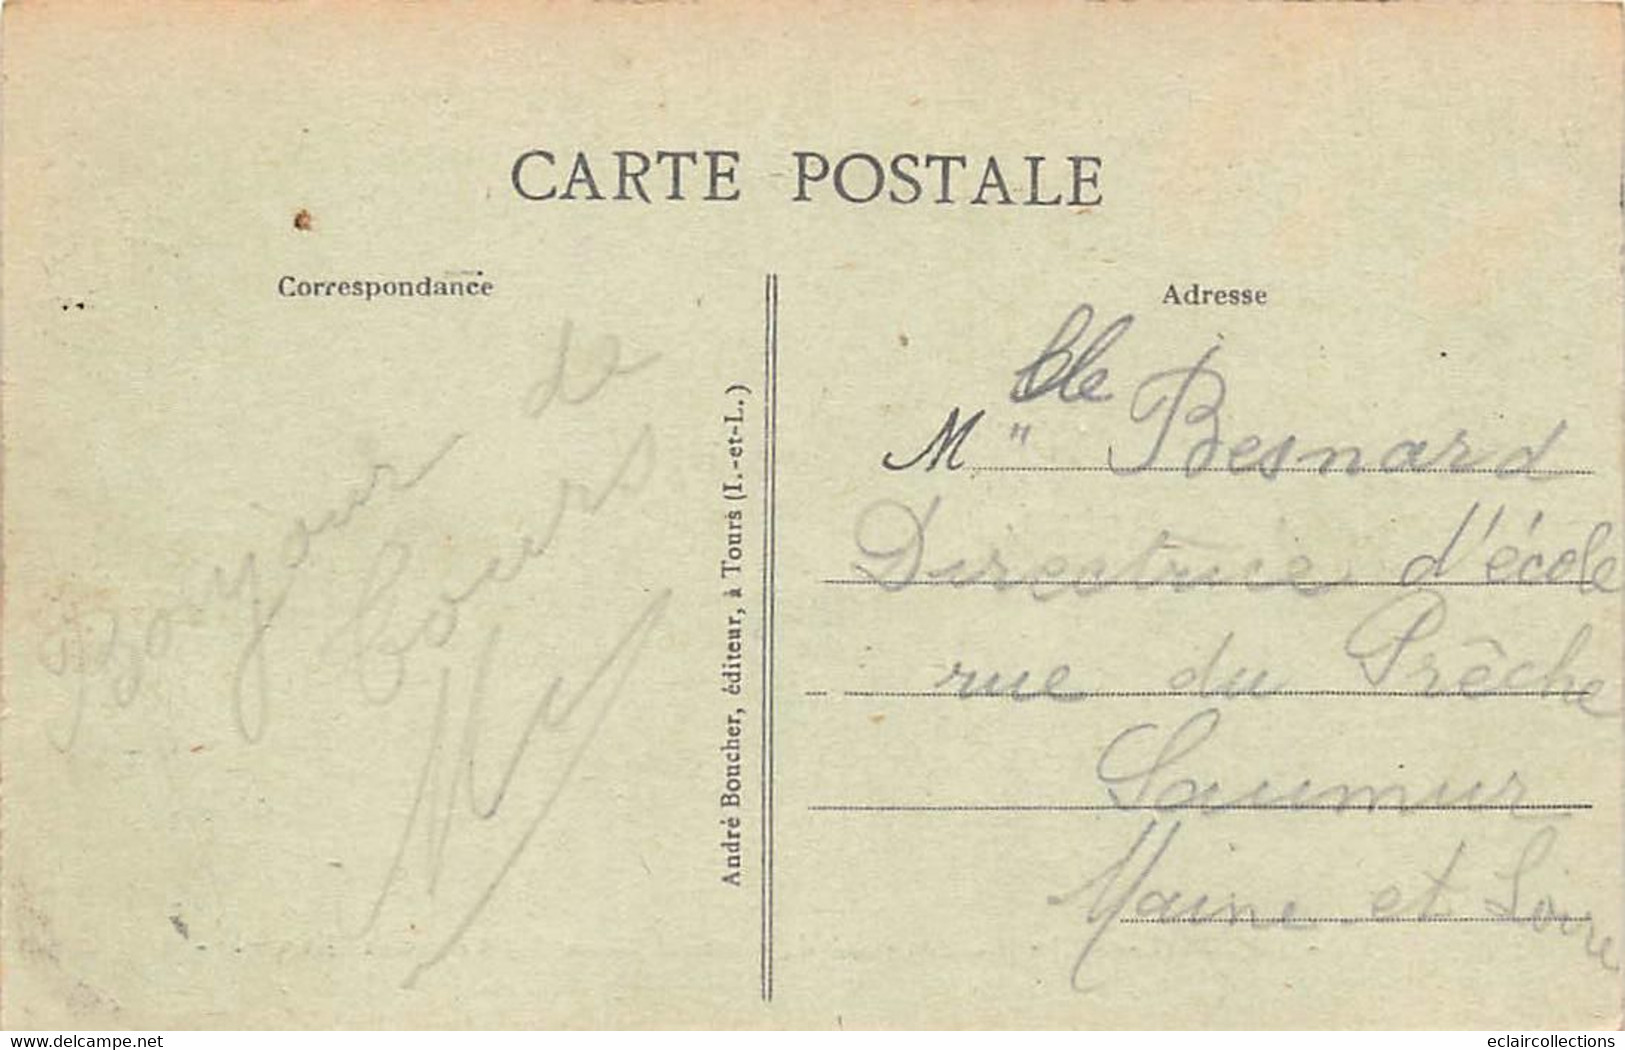 CARTE POSTALE
Correspondance
Bonjour de
Tours
André Boucher, éditeur, à Tours (I.-et-L.)
Adresse
M lle Besnard
Directrice d'école
rue du Prêche
Saumur
Maine et Loire
www.delcampe.net
eclaircollections